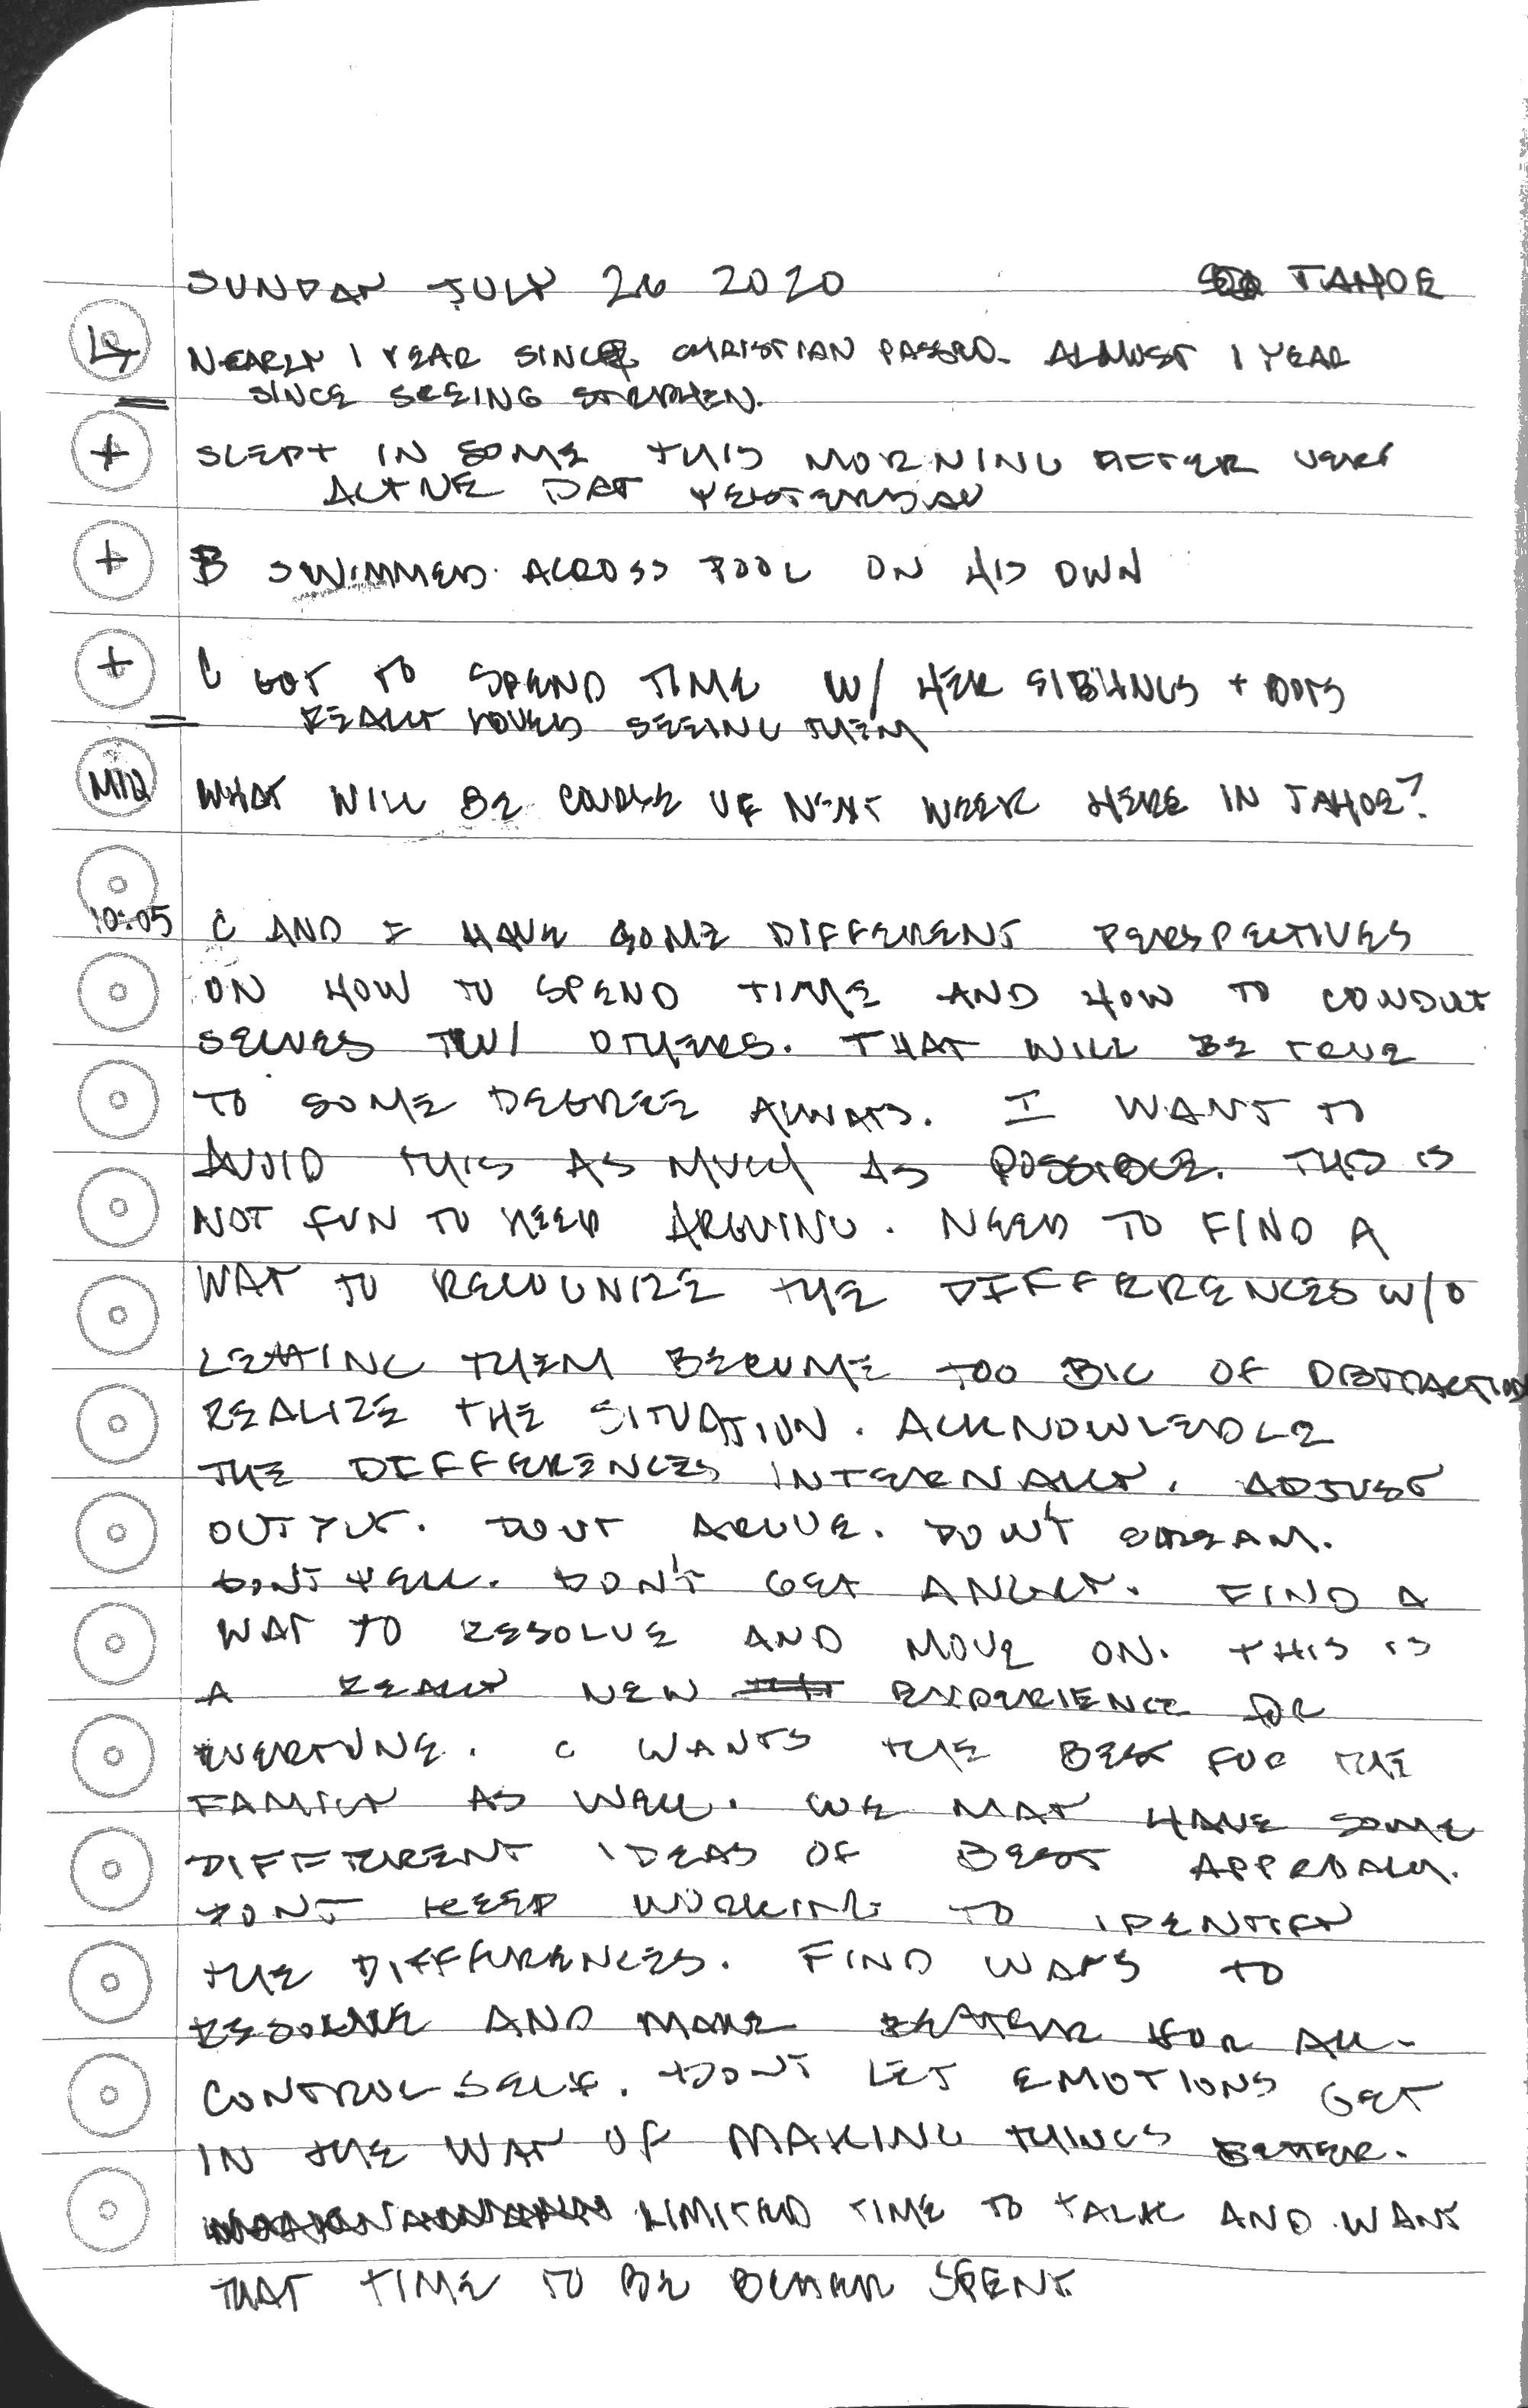 SUNDAY JULY 26 2020 TAHOE
4 NEARLY 1 YEAR SINCE CHRISTIAN PASSED. ALMOST 1 YEAR
SINCE SEEING STEPHEN.
+ SLEPT IN SOME THIS MORNING AFTER VERY
ACTIVE DAY YESTERDAY
+ B SWIMMED ACROSS POOL ON HIS OWN
+ C GOT TO SPEND TIME W/ HER SIBLINGS +
REALLY LOVED SEEING THEM
WHAT WILL BE COUPLE OF NEXT WEEK HERE IN TAHOE?
10:05 C AND I HAVE SOME DIFFERENT PERSPECTIVES
ON HOW TO SPEND TIME AND HOW TO CONDUCT
SELVES W/ OTHERS. THAT WILL BE TRUE
TO SOME DEGREE ALWAYS. I WANT TO
AVOID THIS AS MUCH AS POSSIBLE. THIS IS
NOT FUN TO KEEP ARGUING. NEED TO FIND A
WAY TO RECOGNIZE THE DIFFERENCES W/O
LETTING THEM BECOME TOO BIG OF DISTRACTION
REALIZE THE SITUATION. ACKNOWLEDGE
THE DIFFERENCES INTERNALLY. ADJUST
OUTPUT. DONT ARGUE. DON'T SCREAM.
DON'T YELL. DON'T GET ANGRY. FIND A
WAY TO RESOLVE AND MOVE ON. THIS IS
A REALLY NEW EXPERIENCE FOR
EVERYONE. C WANTS THE BEST FOR THE
FAMILY AS WELL. WE MAY HAVE SOME
DIFFERENT IDEAS OF BEST APPROACH.
DONT KEEP WORKING TO IDENTIFY
THE DIFFERENCES. FIND WAYS TO
RESOLVE AND MAKE BETTER FOR ALL.
CONTROL SELF. DON'T LET EMOTIONS GET
IN THE WAY OF MAKING THINGS BETTER.
LIMITED TIME TO TALK AND WANT
THAT TIME TO BE BETTER SPENT.